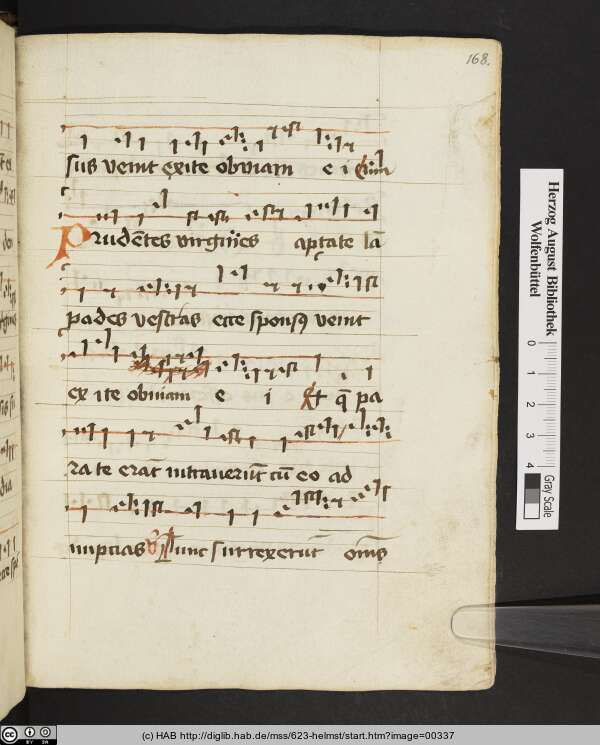 168.
sus venit exite obviam e i
Prudētes virgines aptate lā
pades vestras ecce sponsꝯ venit
ex ite obviam e i Et q̄ pa
ra te erāt intraverūt cū eo ad
nuptias Tunc surrexerūt om̄s
Herzog August Bibliothek
Wolfenbüttel
0 1 2 3 4
Gray Scale
(c) HAB http://diglib.hab.de/mss/623-helmst/start.htm?image=00337